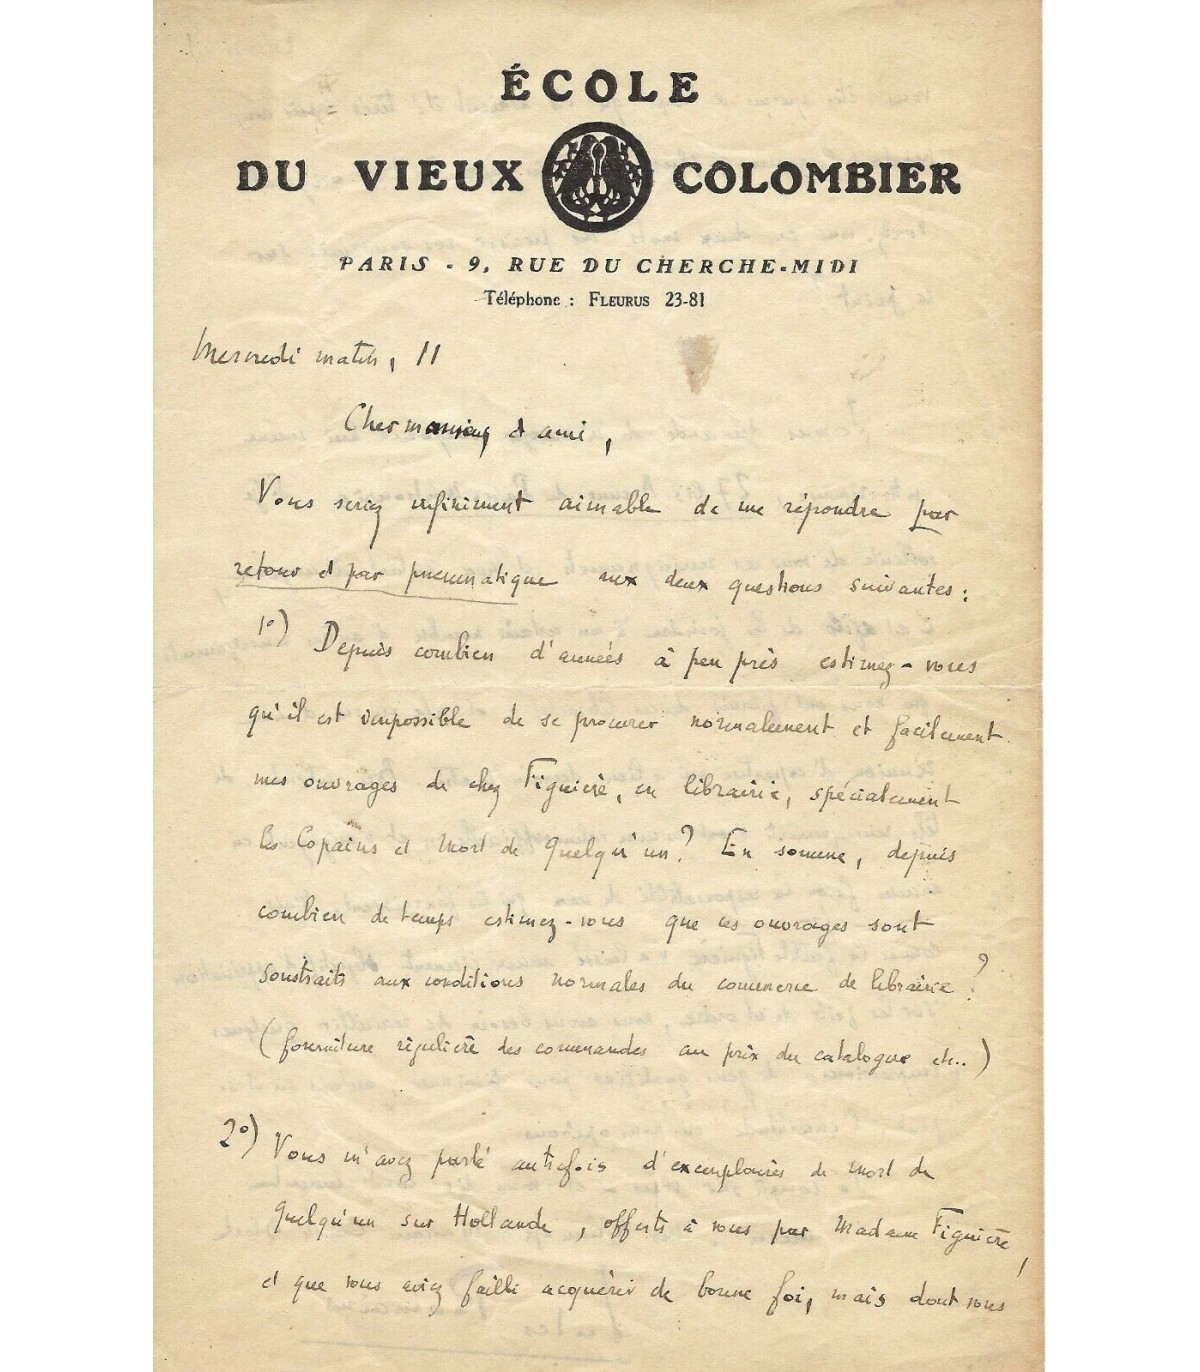 ÉCOLE
DU VIEUX COLOMBIER
PARIS - 9, RUE DU CHERCHE-MIDI
Téléphone : FLEURUS 23-81
Mercredi matin, 11
Cher monsieur et ami,
Vous seriez infiniment aimable de me répondre par
retour et par pneumatique aux deux questions suivantes :
1°) Depuis combien d'années à peu près estimez-vous
qu'il est impossible de se procurer normalement et facilement
mes ouvrages de chez Figuière, en librairie, spécialement
les Copains et Mort de Quelqu'un ? En somme, depuis
combien de temps estimez-vous que ces ouvrages sont
soustraits aux conditions normales du commerce de librairie ?
(fourniture régulière des commandes au prix du catalogue etc..)
2°) Vous m'avez parlé autrefois d'exemplaires de Mort de
Quelqu'un sur Hollande, offerts à vous par Madame Figuière,
et que vous aviez failli acquérir de bonne foi, mais dont vous